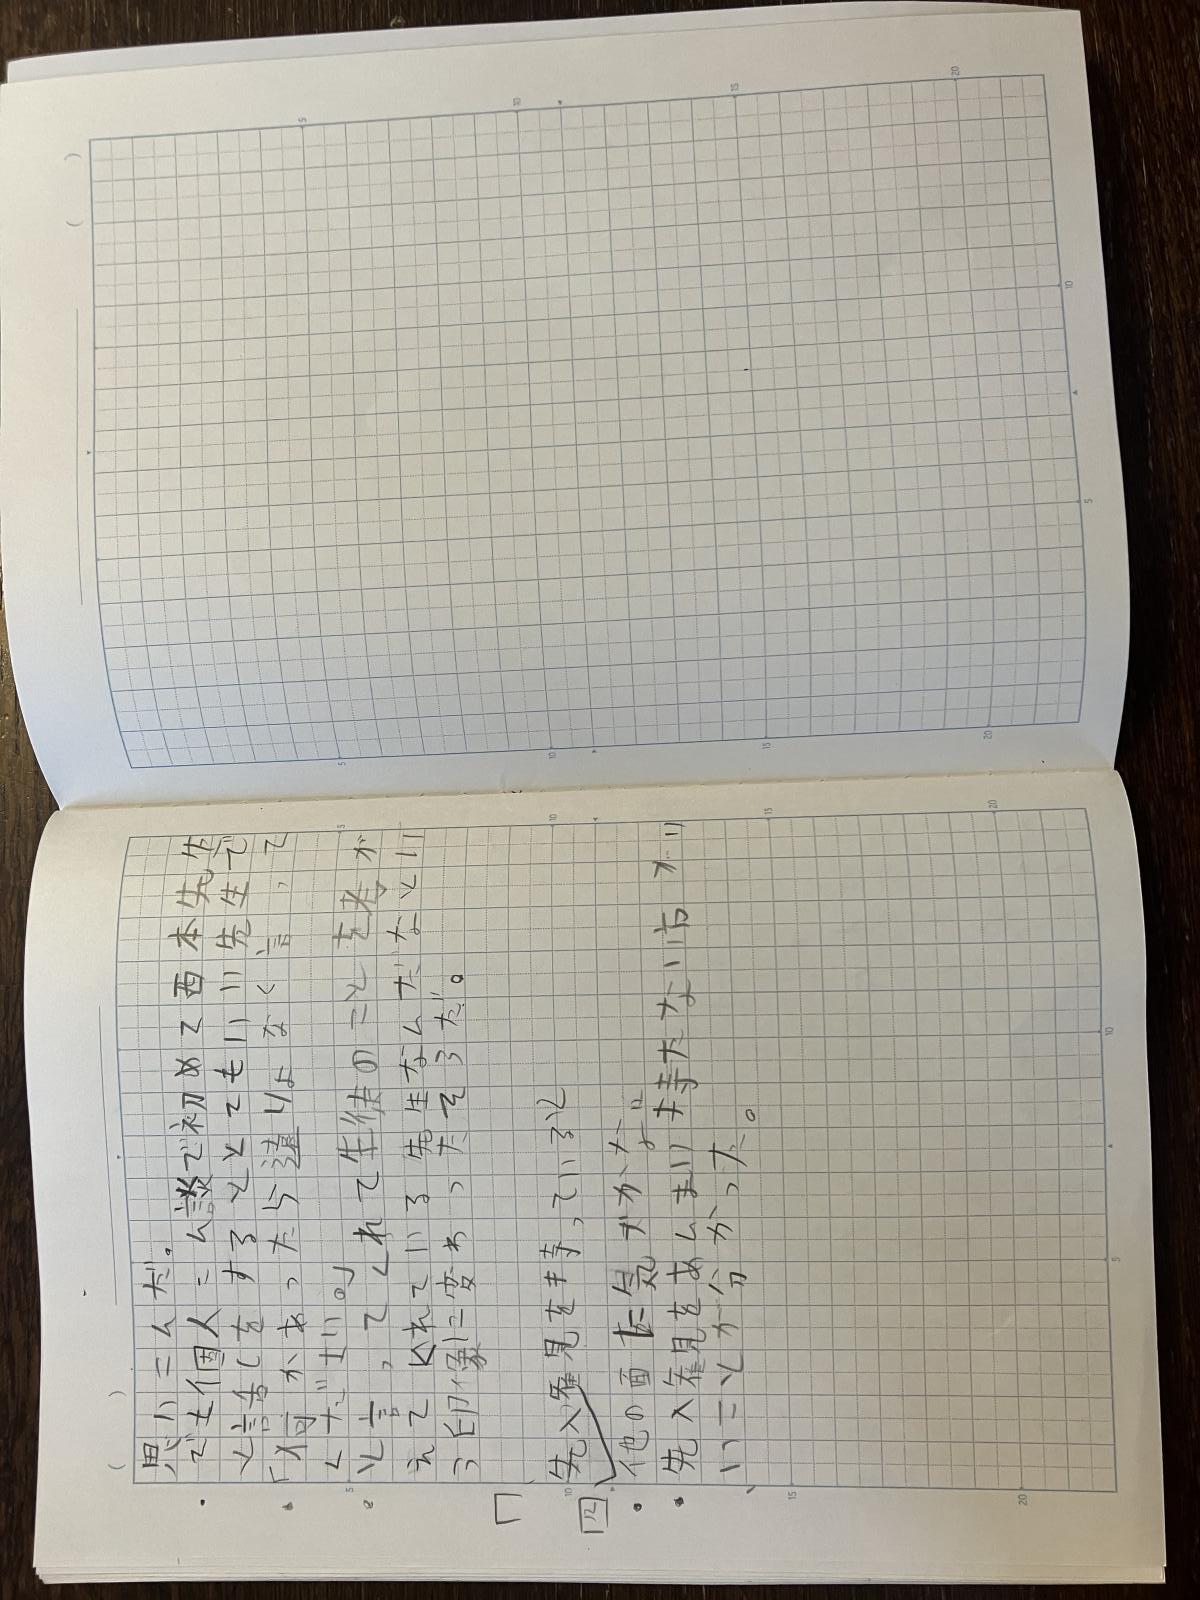 思いこんだ。
でも個人こん談で初めて西本先生
と話しをするととてもいい先生で
「何かあったら遠りょなく言って
ください。」
と言ってくれて生徒のことを考が
えてくれている先生なんだなとい
う印像に変わったそうだ。
先入観見を持っていると
四
他の面に気づかない
先入観見をあんまり持たない方がい
いことが分かった。